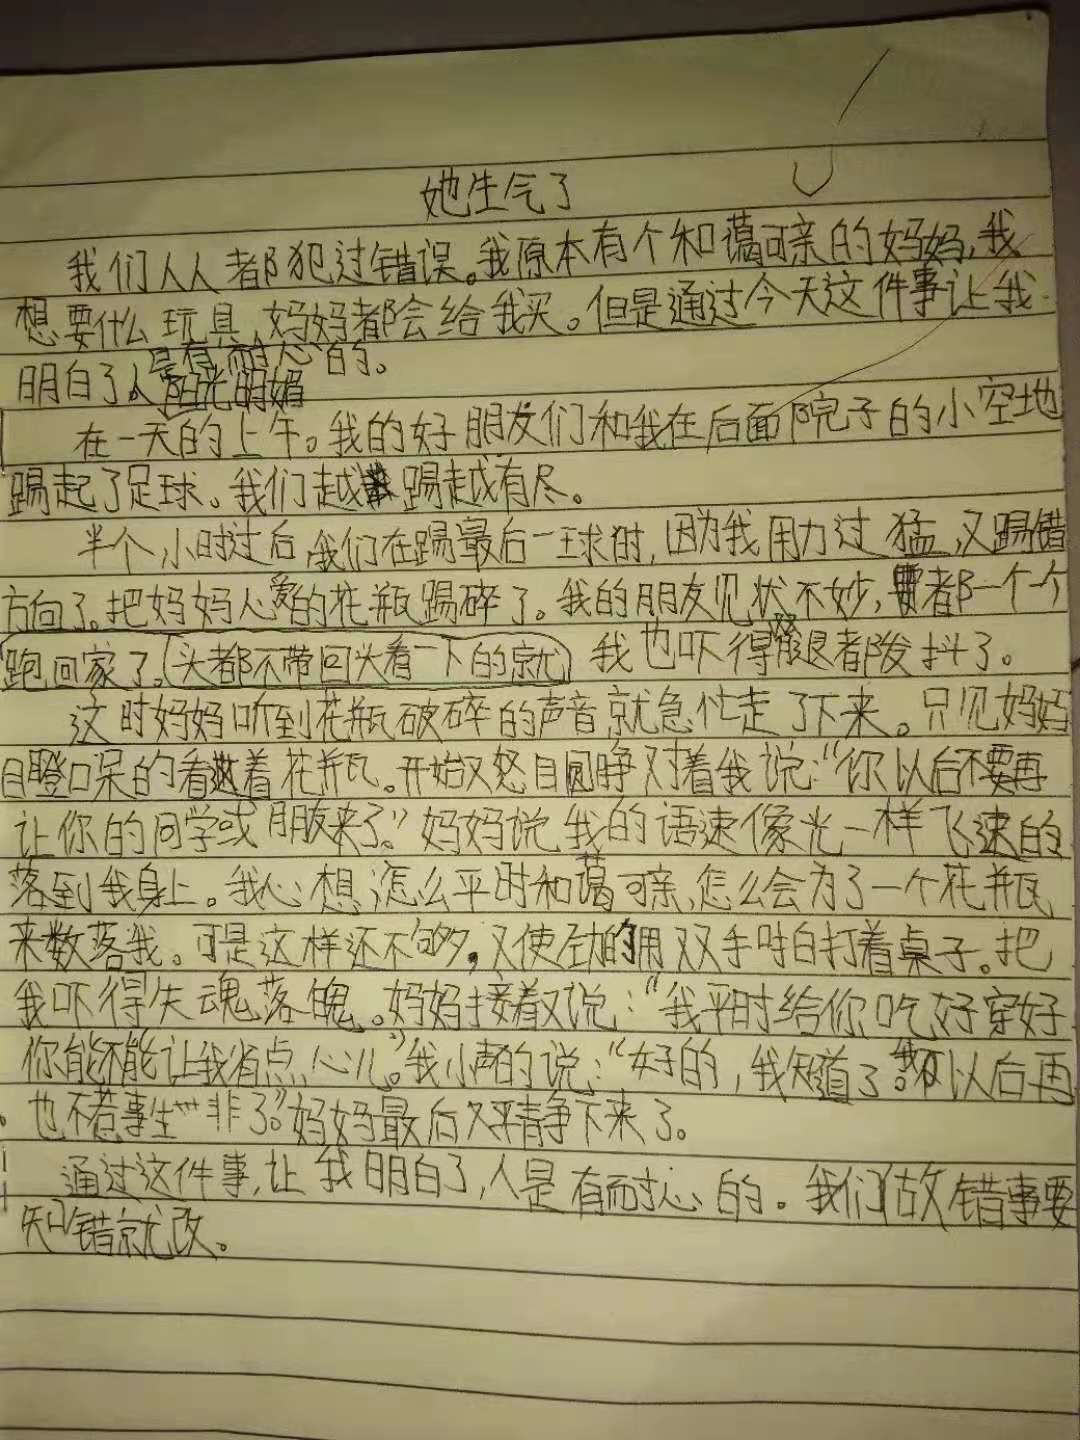 她生气了
我们人人都犯过错误。我原本有个和蔼可亲的妈妈,我
想要什么玩具,妈妈都会给我买。但是通过今天这件事让我
明白了人是有耐心的。
阳光明媚
在一天的上午。我的好朋友们和我在后面院子的小空地
踢起了足球。我们越踢越有尽。
半个小时过后,我们在踢最后一球时,因为我用力过猛,又踢错
方向了。把妈妈心爱的花瓶踢碎了。我的朋友见状不妙,都一个个
跑回家了。(头都不带回头看一下的就)我也吓得双腿都发抖了。
这时妈妈听到花瓶破碎的声音就急忙走了下来。只见妈妈
目瞪口呆的看着花瓶。开始又怒目圆睁对着我说:“你以后不要再
让你的同学或朋友来了。”妈妈说我的语速像光一样飞速的
落到我身上。我心想:怎么平时和蔼可亲,怎么会为了一个花瓶
来数落我。可是这样还不够,又使劲的用双手拍打着桌子。把
我吓得失魂落魄。妈妈接着又说:“我平时给你吃好穿好
你能不能让我省点心儿。”我小声的说:“好的,我知道了。我以后再
也不惹事生非了。”妈妈最后又平静下来了。
通过这件事,让我明白了,人是有耐心的。我们做错事要
知错就改。